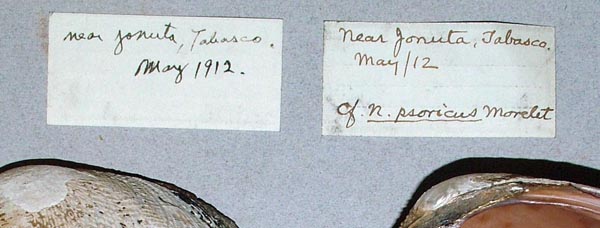 near Jonuta, Tabasco.
May 1912.
Near Jonuta, Tabasco.
May/12
cf. N. psoricus Morelet